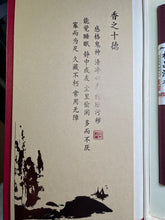 香之十德
感格鬼神 清淨心身 能除污穢
能覺睡眠 靜中成友 塵里偷閑 多而不厌
寡而为足 久藏不朽 常用无障